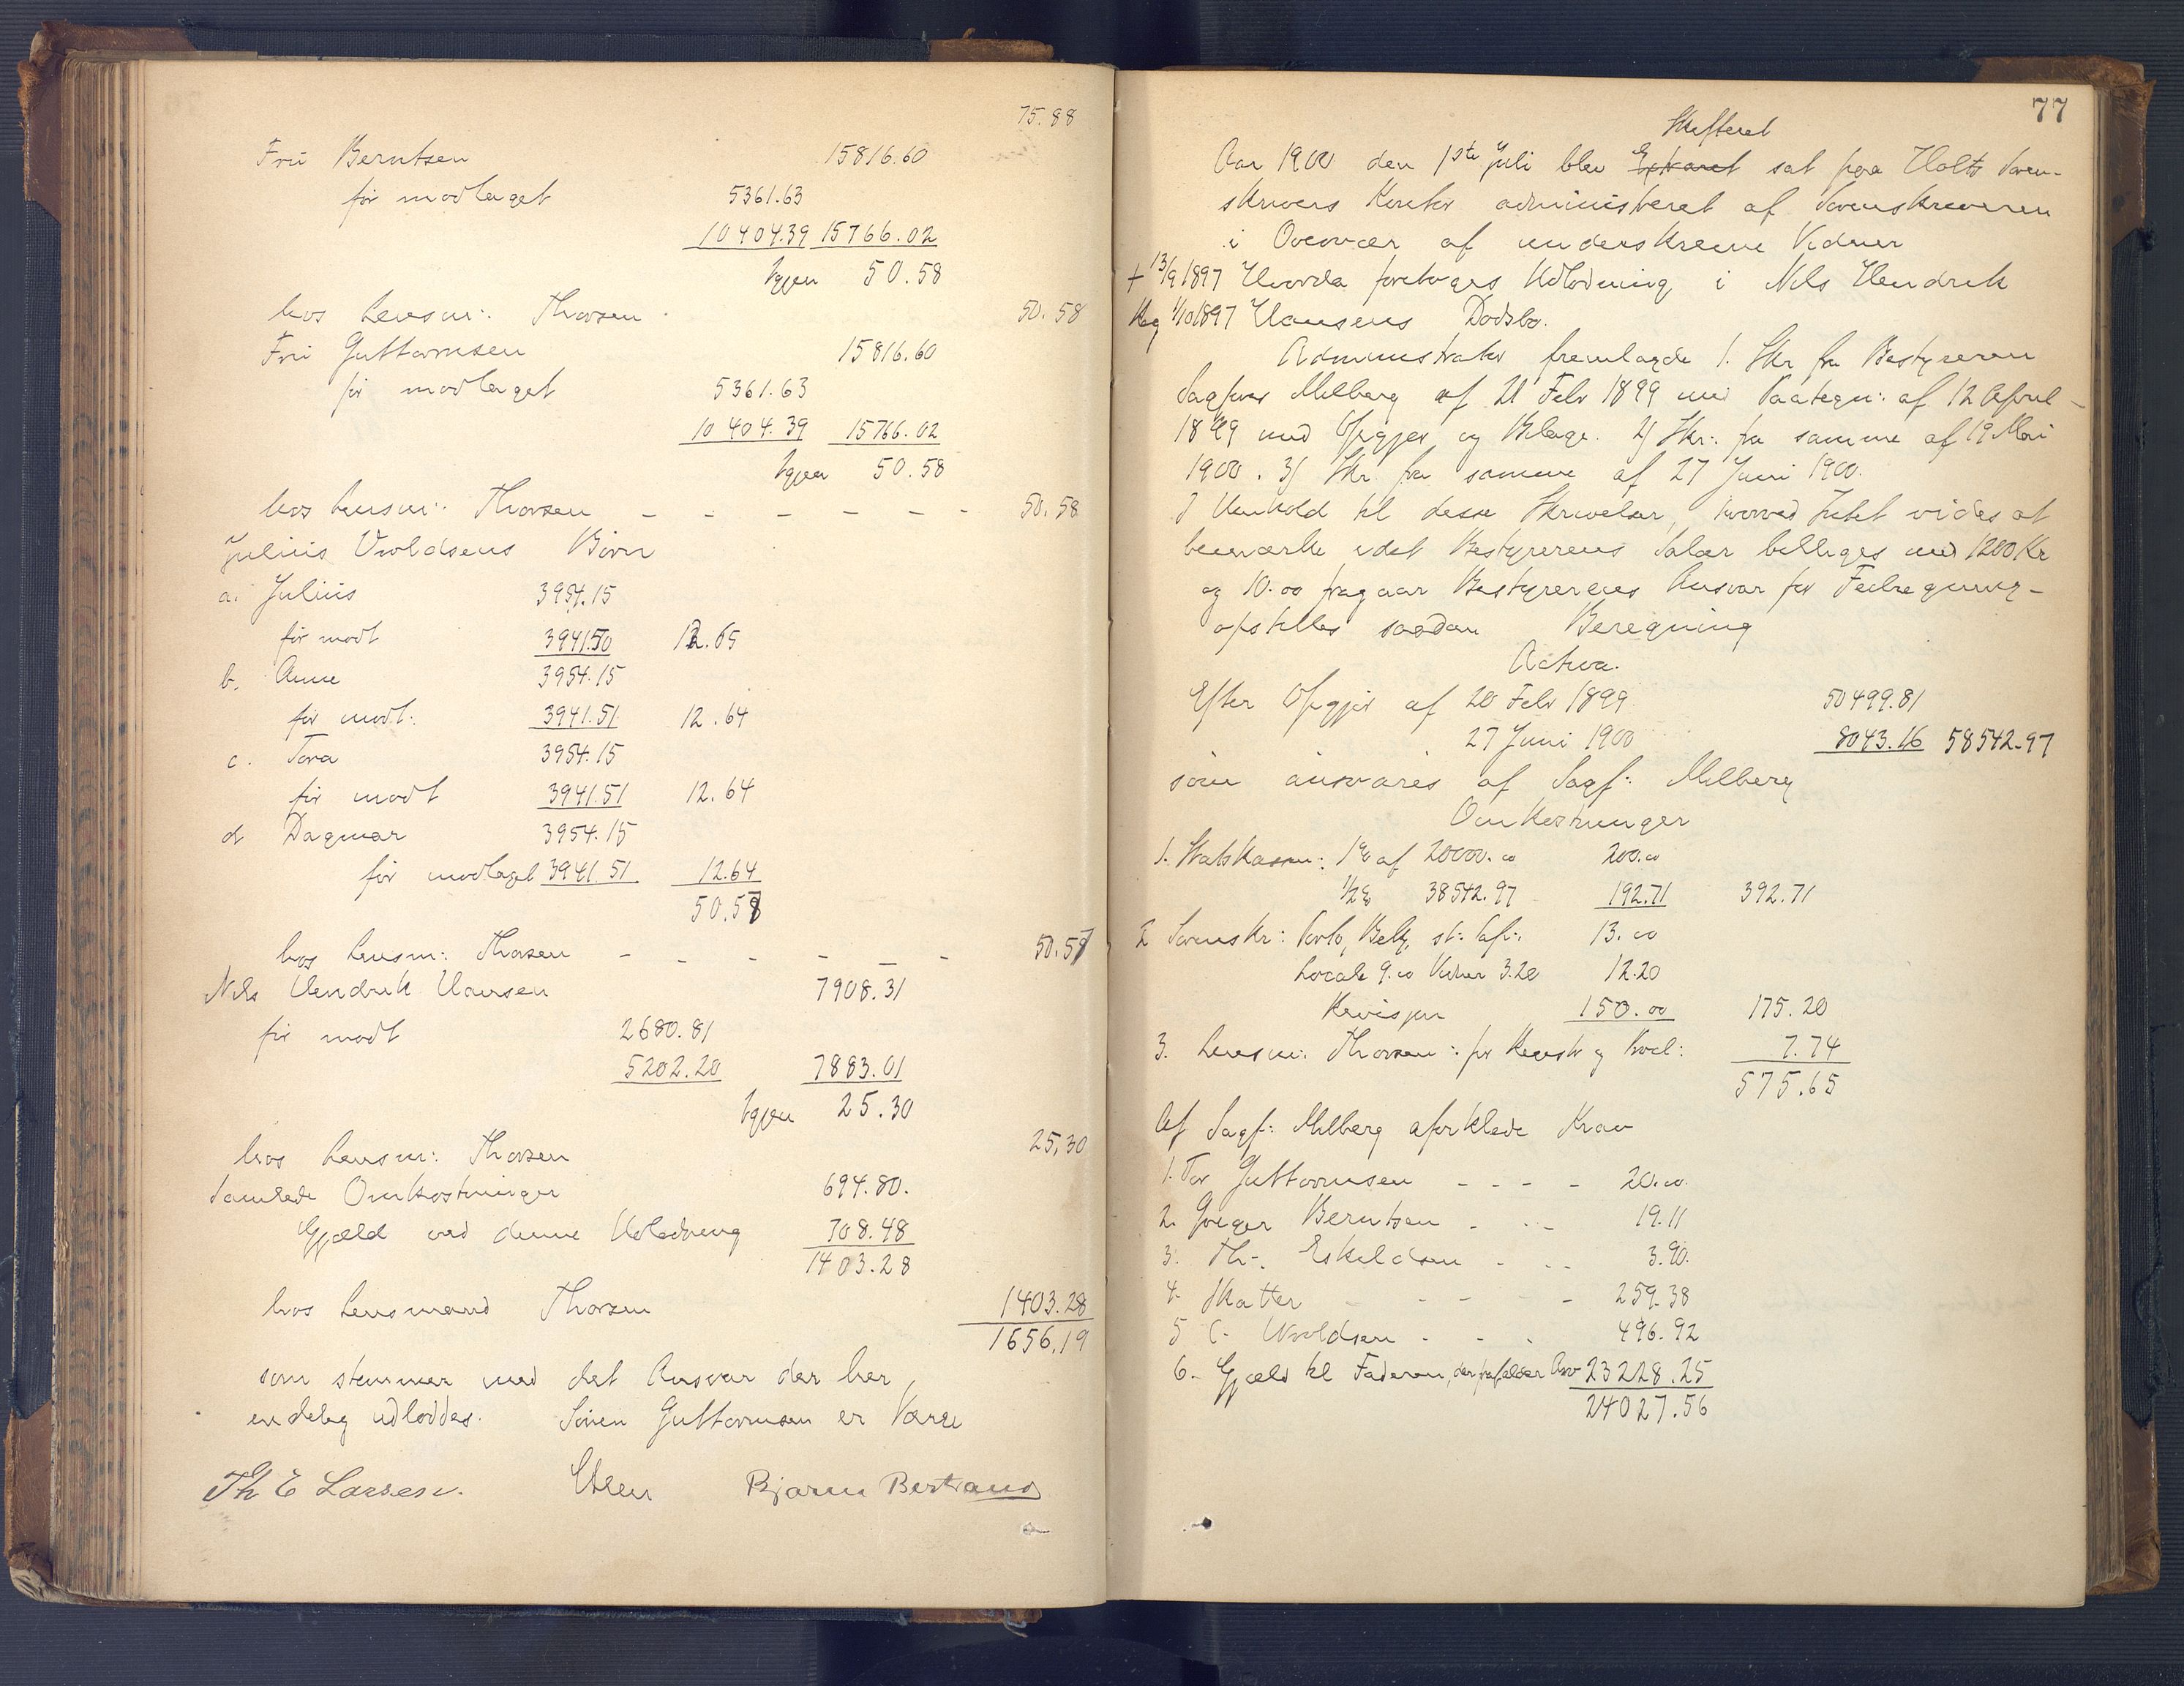 75.88
Fru Berntsen 15816.60
før modtaget 5361.63
10404.39 15766.02
Igjen 50.58
hos Lensm: Thorsen 50.58
Fru Guttormsen 15816.60
før modtaget 5361.63
10404.39 15766.02
Igjen 50.58
hos Lensm: Thorsen - - - - - - 50.58
Julius Uvoldsens Børn
a. Julius 3954.15
før modt 3941.50 12.65
b. Anne 3954.15
før modt: 3941.51 12.64
c. Tora 3954.15
før modt 3941.51 12.64
d Dagmar 3954.15
før modtaget 3941.51 12.64
50.57
hos Lensm: Thorsen - - - - - - 50.57
Nils Hendrik Hansen 7908.31
før modt 2680.81
5202.20 7883.01
Igjen 25.30
hos Lensm: Thorsen 25,30
Samlede Omkostninger 694.80.
Gjæld ved denne Udlodning 708.48
1403.28
hos Lensmand Thorsen 1403.28
1656.19
som stemmer med det Ansvar der her
endelig udloddes. Søren Guttormsen er Værge
Th E Larsen. Bjarne Bertrand
77
Skifteret
Aar 1900 den 1ste Juli blev sat paa Holts Soren-
skrivers Kontor administreret af Sorenskriveren
i Overvær af underskrevne Vidner
+ 13/9 1897 Hvorda foretoges Udlodning i Nils Hendrik
Reg 1/10 1897 Hansens Dødsbo.
Administrator fremlagde 1. Skr fra Bestyreren
Sagfører Milberg af 21 Febr 1899 med Paategn: af 12 April
1899 med Opgjør og Bilage. 2/ Skr: fra samme af 19 Mai
1900. 3/ Skr fra samme af 27 Juni 1900.
I Henhold til disse Skrivelser, hvorved Intet vides at
bemærke idet Bestyrerens Salær billiges med 1200 Kr
og 10.00 fragaar Bestyrerens Ansvar for Feilregning -
opstilles saadan Beregning
Activa.
Efter Opgjør af 20 Febr 1899 50499.81
27 Juni 1900 8043.16 58542.97
som ansvares af Sagf: Milberg
Omkostninger
1. Statskassen: 1% af 20000.00 200.00
1/2% 38542.97 192.71 392.71
2 Sorenskr: Porto, Bek, st: 13.00
Locale 9.00 Vidner 3.20 12.20
Revision 150.00 175.20
3. Lensm: Thorsen: for Registr og 7.74
575.65
Af Sagf: Milberg Krav
1. Tor Guttormsen - - - - 20.00
2. Berntsen - - - 19.11
3. Th. Eskildsen - - - 3.90.
4. Skatter - - - - - 259.38
5 C. Uvoldsen - - - 496.92
6. Gjæld til Faderen, der frafalder Arv 23228.25
24027.56